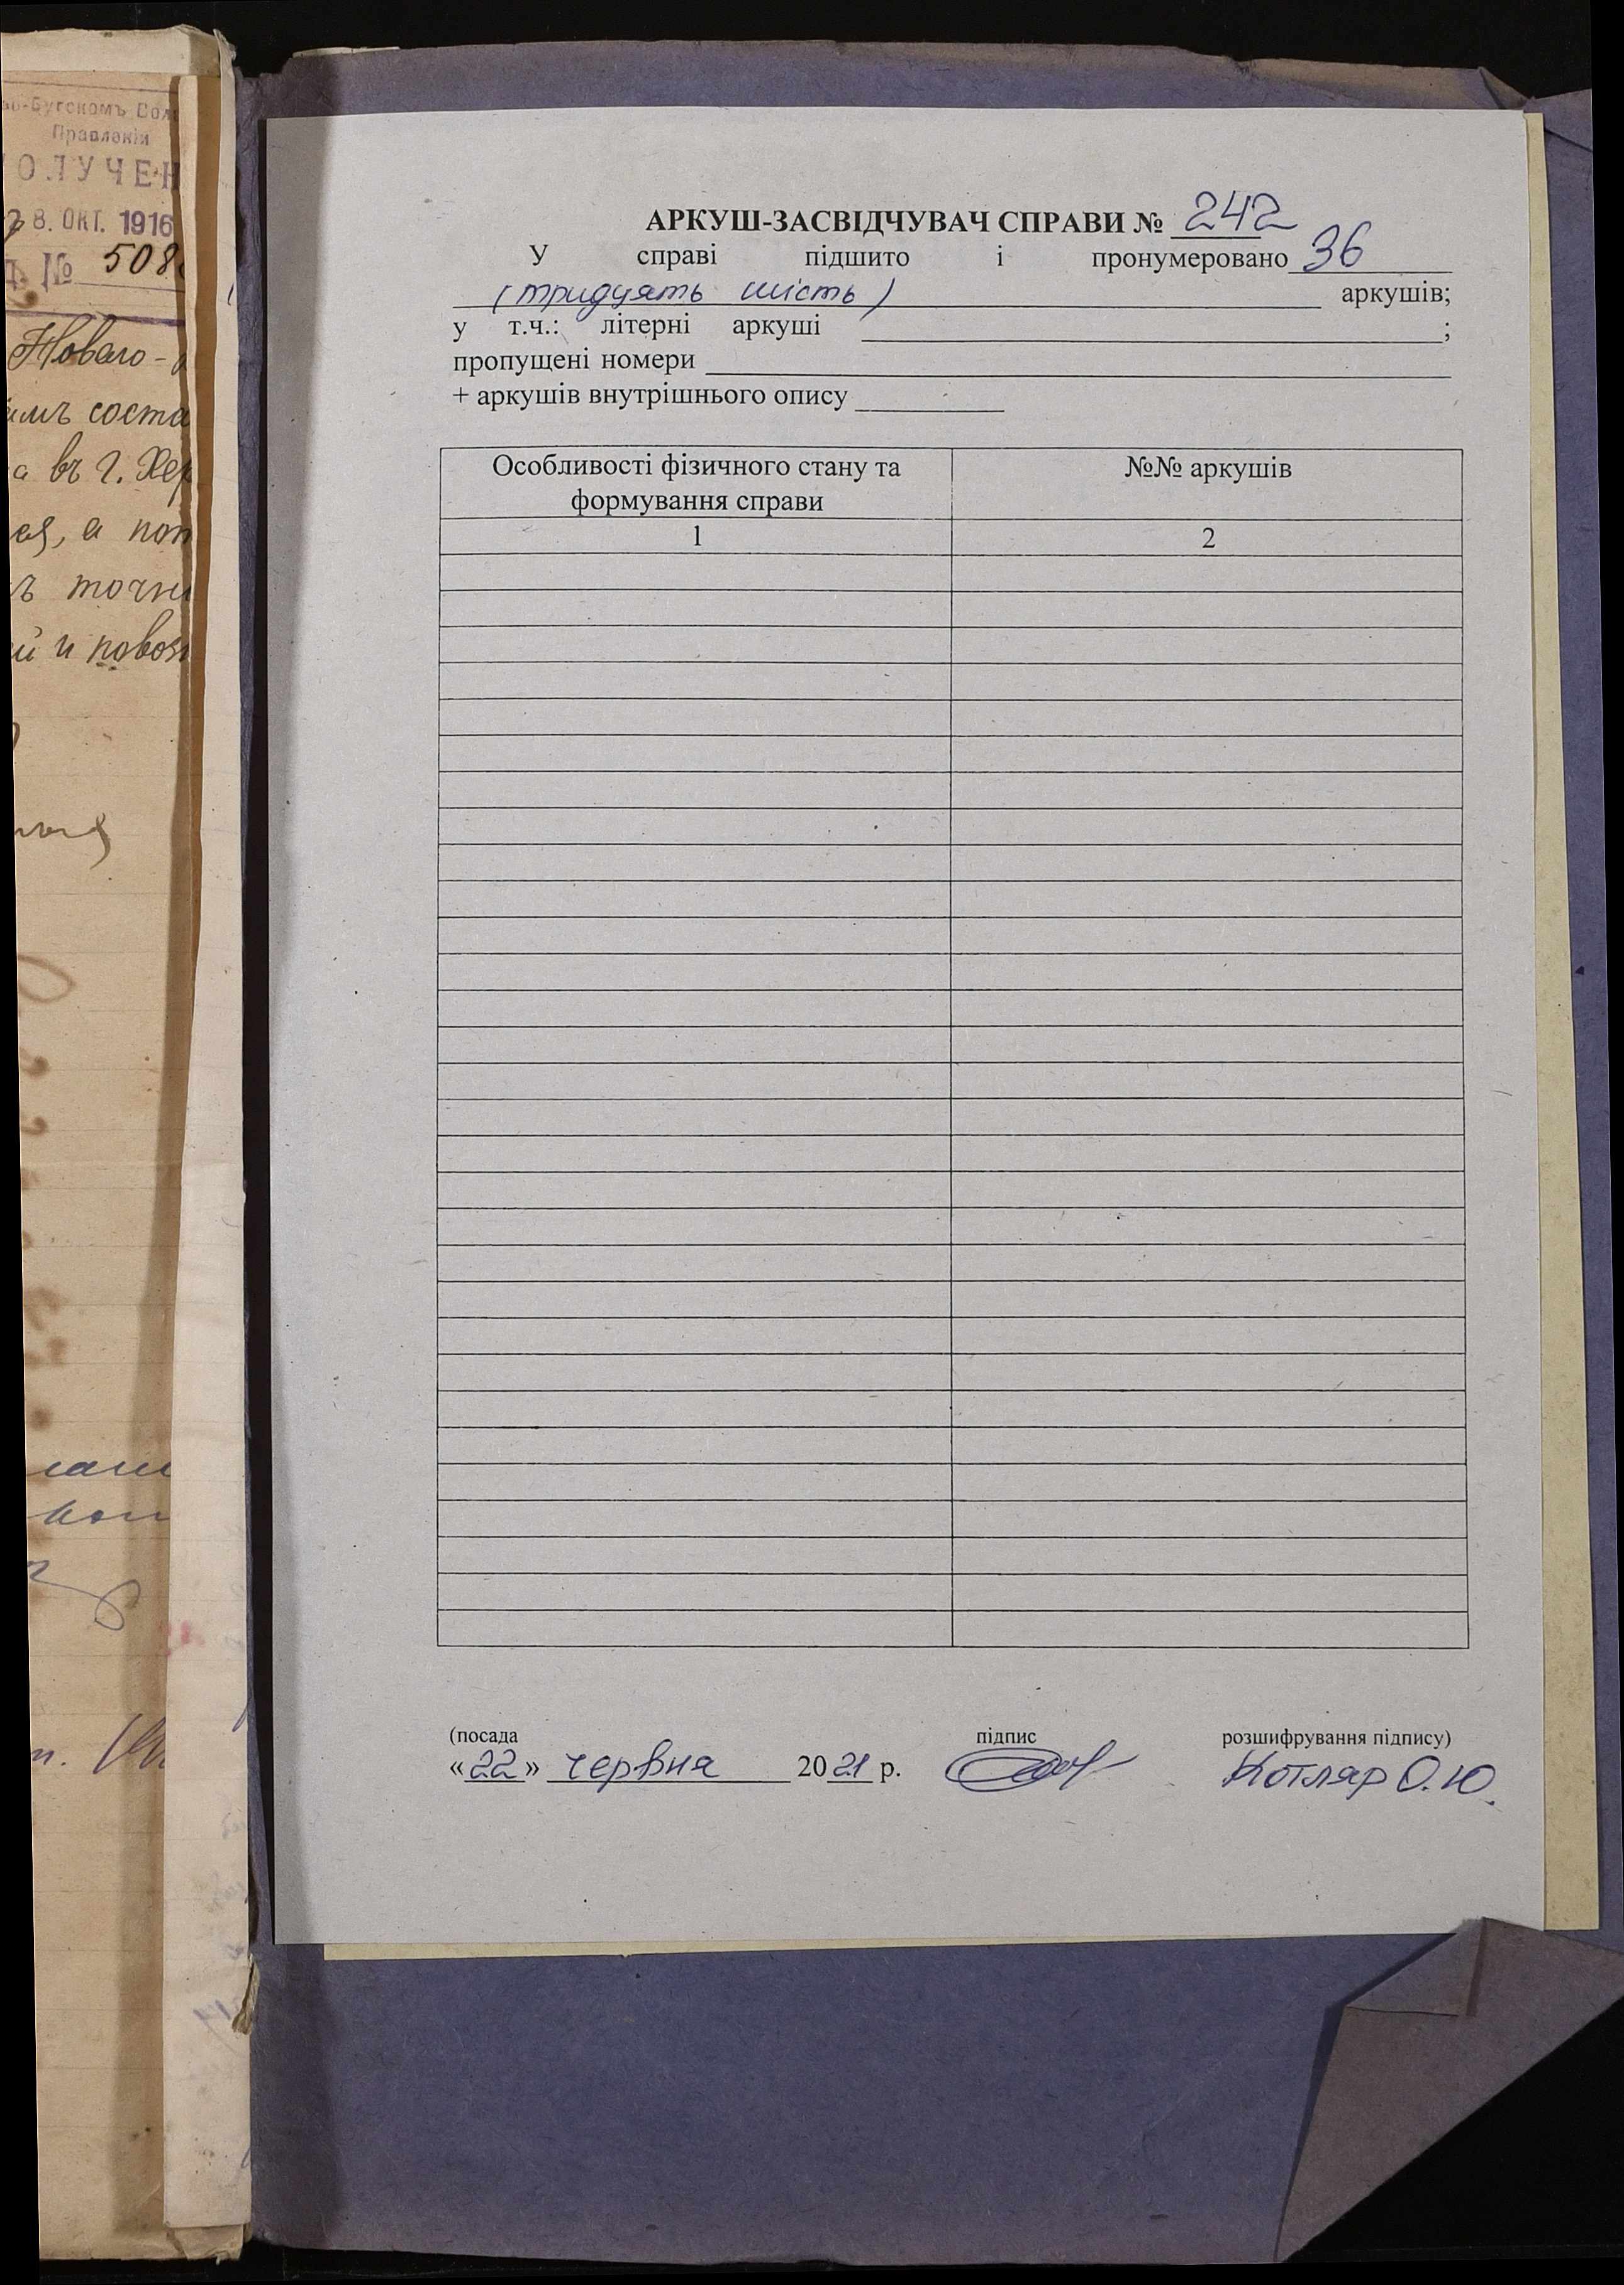 Правленіи
8. ОКТ. 1916
№ 508
Новаго-
въ г. Хер
а
точн
й и повоз
АРКУШ-ЗАСВІДЧУВАЧ СПРАВИ № 242
У справі підшито і пронумеровано 36
(тридцять шість) аркушів;
у т.ч.: літерні аркуші ;
пропущені номери
+ аркушів внутрішнього опису
Особливості фізичного стану та формування справи
№№ аркушів
1 2
(посада підпис розшифрування підпису)
«22» червня 2021 р. Котляр О.Ю.